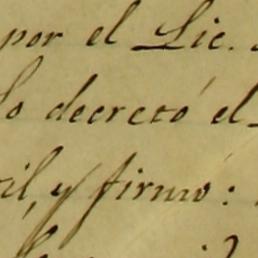 por el Lic.
lo decretó el
il, y firmó: